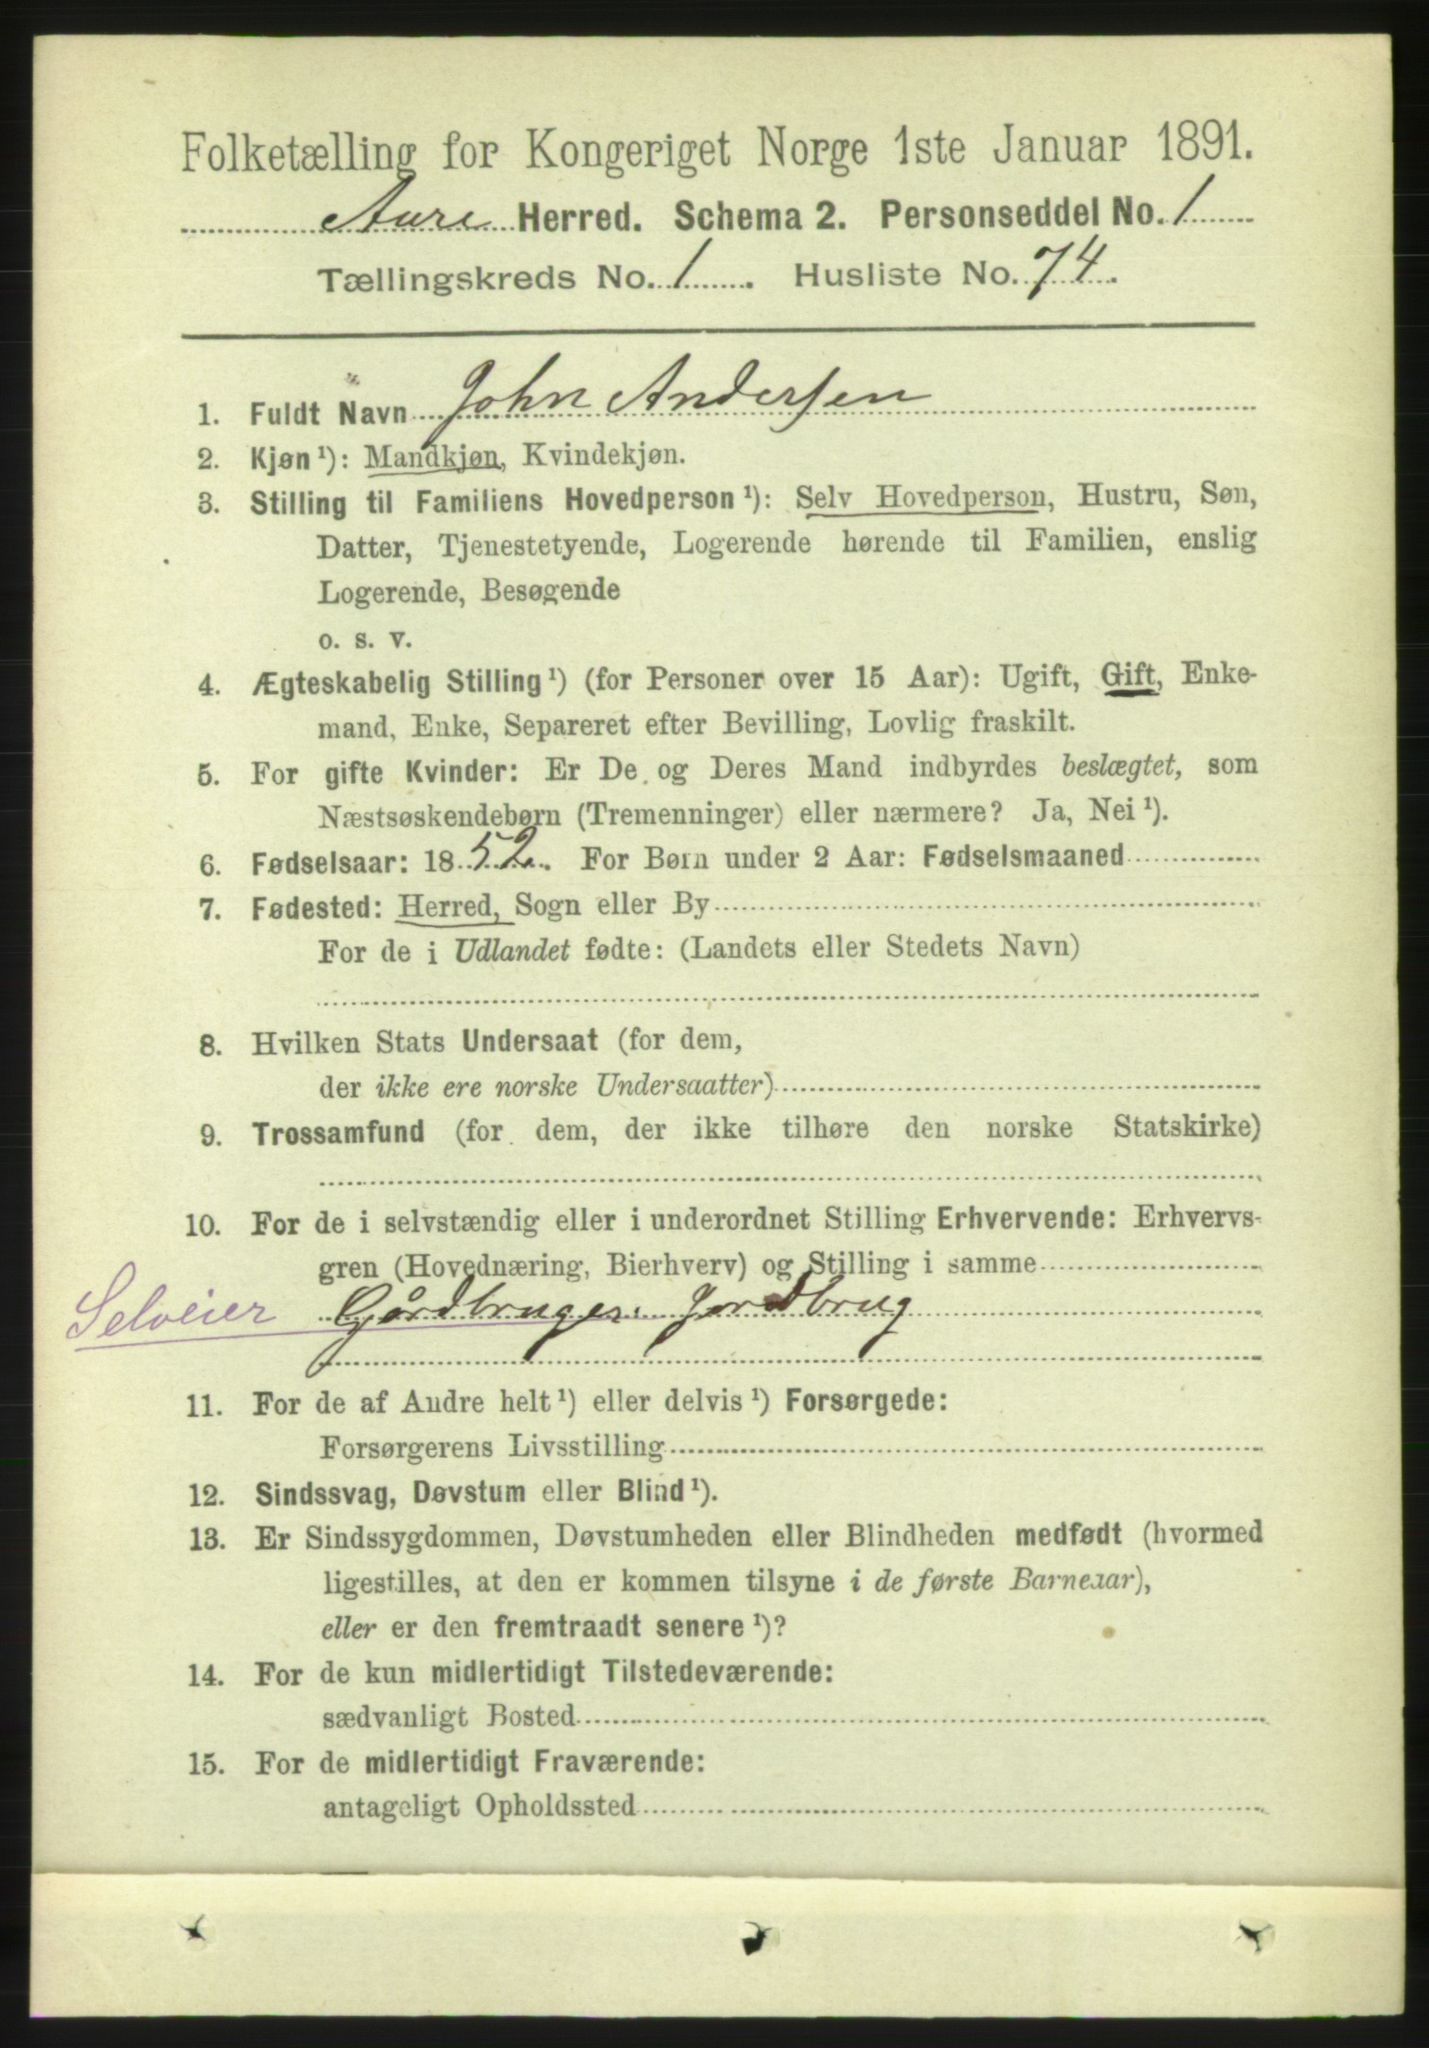 Folketælling for Kongeriget Norge 1ste Januar 1891.
Aure Herred. Schema 2. Personseddel No. 1
Tællingskreds No. 1. Husliste No. 74.
1. Fuldt Navn John Andersen
2. Kjøn ¹): Mandkjøn, Kvindekjøn.
3. Stilling til Familiens Hovedperson ¹): Selv Hovedperson, Hustru, Søn,
Datter, Tjenestetyende, Logerende hørende til Familien, enslig
Logerende, Besøgende
o. s. v.
4. Ægteskabelig Stilling ¹) (for Personer over 15 Aar): Ugift, Gift, Enke-
mand, Enke, Separeret efter Bevilling, Lovlig fraskilt.
5. For gifte Kvinder: Er De og Deres Mand indbyrdes beslægtet, som
Næstsøskendebørn (Tremenninger) eller nærmere? Ja, Nei ¹).
6. Fødselsaar: 1852. For Børn under 2 Aar: Fødselsmaaned
7. Fødested: Herred, Sogn eller By
For de i Udlandet fødte: (Landets eller Stedets Navn)
8. Hvilken Stats Undersaat (for dem,
der ikke ere norske Undersaatter)
9. Trossamfund (for dem, der ikke tilhøre den norske Statskirke)
10. For de i selvstændig eller i underordnet Stilling Erhvervende: Erhvervs-
gren (Hovednæring, Bierhverv) og Stilling i samme
Selveier Gårdbruger. Jordbrug
11. For de af Andre helt ¹) eller delvis ¹) Forsørgede:
Forsørgerens Livsstilling
12. Sindssvag, Døvstum eller Blind ¹).
13. Er Sindssygdommen, Døvstumheden eller Blindheden medfødt (hvormed
ligestilles, at den er kommen tilsyne i de første Barneaar),
eller er den fremtraadt senere ¹)?
14. For de kun midlertidigt Tilstedeværende:
sædvanligt Bosted
15. For de midlertidigt Fraværende:
antageligt Opholdssted